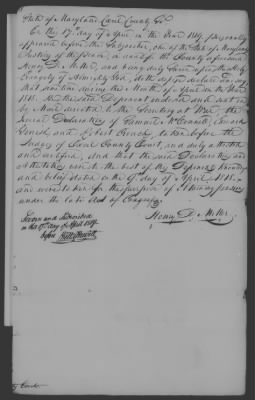 State of Maryland Cecil County Sct
On the 17th day of April in the Year 1819, personally
appeared before the Subscriber, one of the State of Maryland
Justices of the Peace, in and for the County aforesaid
Henry D. Miller, and being duly Sworn upon the Holy
Evangely of Almighty God, doth depose declare and say
that sometime during the Month of April in the Year
1818. He the said Deponent
be Mail directed to the Secretary at War the
Several Declarations of Samuel McConnell, Edward
Parrish and Robert Crouch, taken before the
Judges of Cecil County Court, and duly attested
and certified, And that the said Declarations
to the best of the Deponents knowledge
and belief dated on the 9th day of April 1818.
and were taken for the purpose of obtaining pensions
under the late Act of Congress
Sworn and Subscribed
on this 17th day of April 1819
before
Henry D. Miller